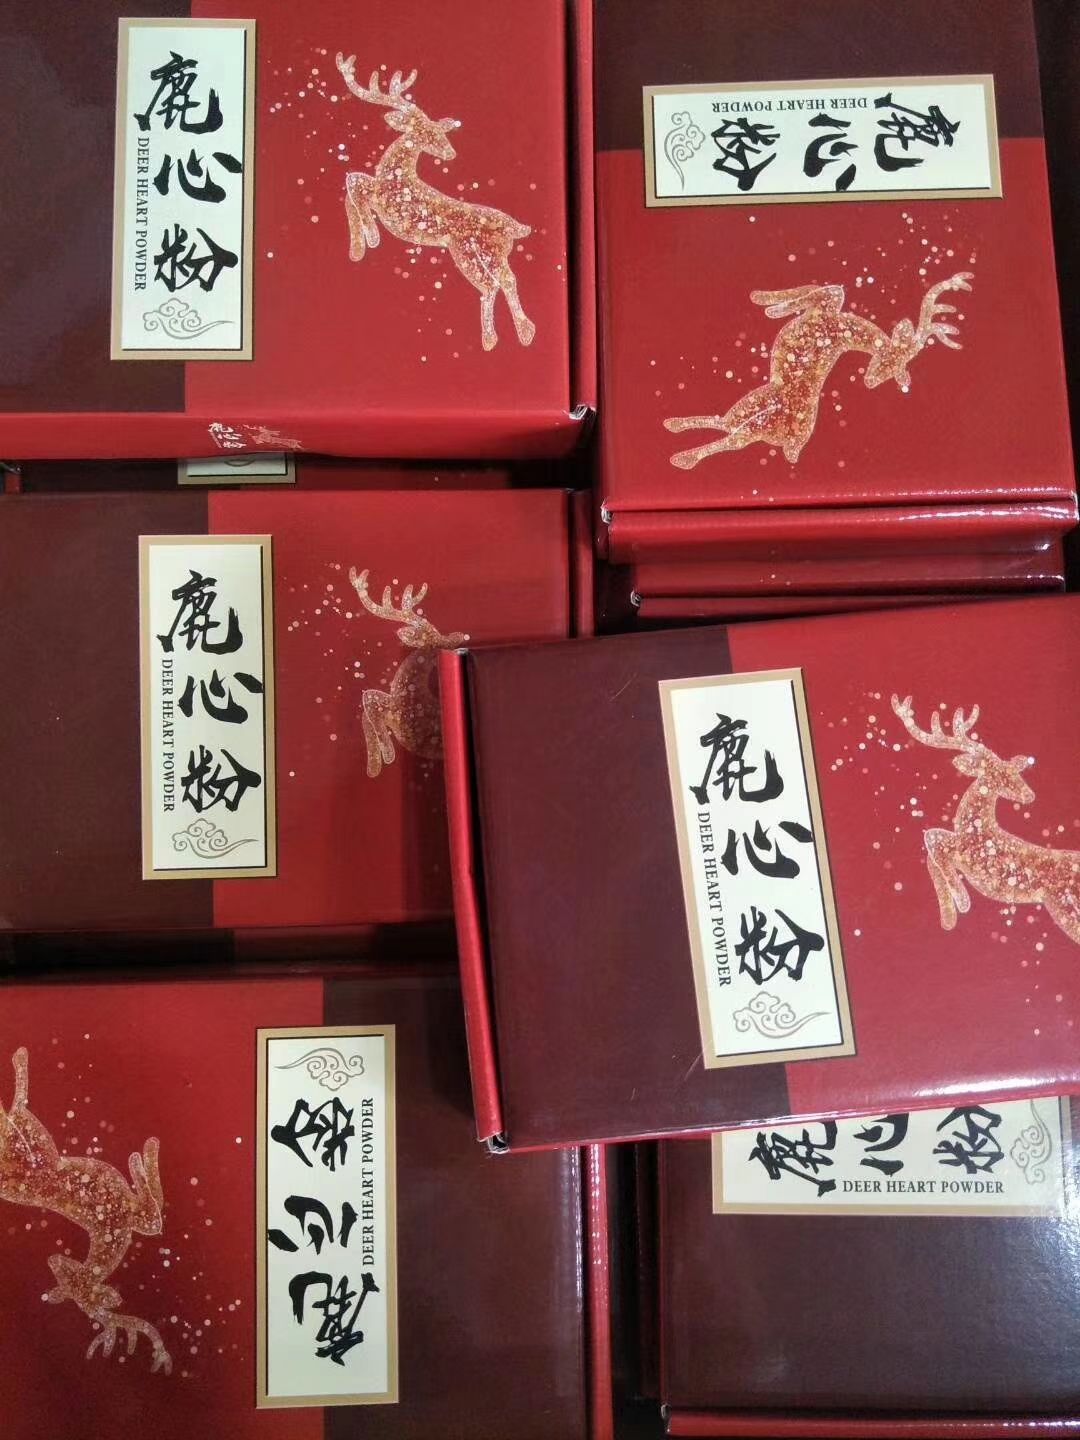 鹿心粉
DEER HEART POWDER
鹿心粉
DEER HEART POWDER
鹿心粉
鹿心粉
DEER HEART POWDER
鹿心粉
DEER HEART POWDER
鹿心粉
DEER HEART POWDER
鹿心粉
DEER HEART POWDER